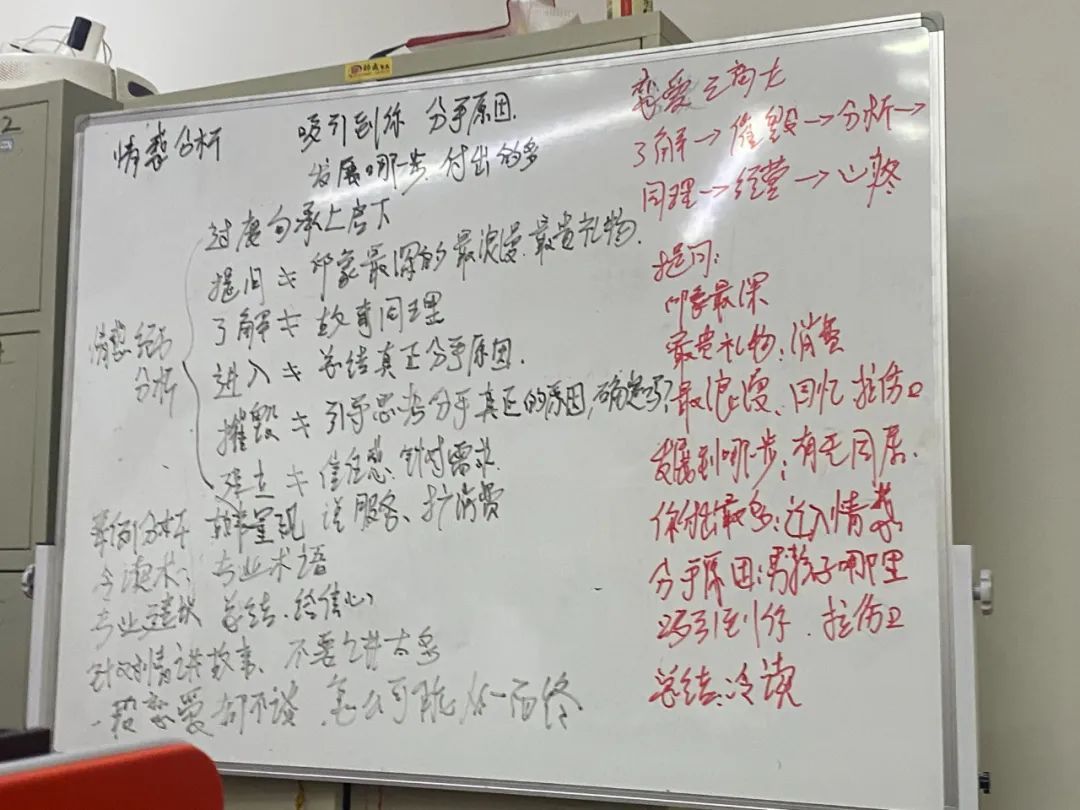 情感分析 吸引到你 分手原因.
发展哪一步.付出的多
过度句承上启下
提问 印象最深的最浪漫.最贵礼物.
了解 故事同理
情感 分析
进入 总结真正分手原因.
摧毁 引导思考分手真正的原因,确定吗?
建立 信任感.针对需求.
举例分析 呈现 说服客、扩消费
冷读术: 专业术语
专业建议 总结.给信心
针对剧情讲故事、不要讲太多
一段恋爱都不谈.怎么可能从一而终
恋爱之商大
了解→催毁→分析→
同理→经营→心疼
提问:
印象最深
最贵礼物:消费
最浪漫、回忆 拉伤口
发展到哪一步;有无同居.
你付出最多:进入情感
分手原因:男孩子哪里
吸引到你.拉伤口
总结:冷读